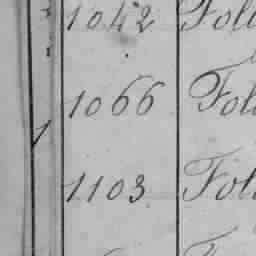 1042 Fol
1066 Fol
1103 Fol